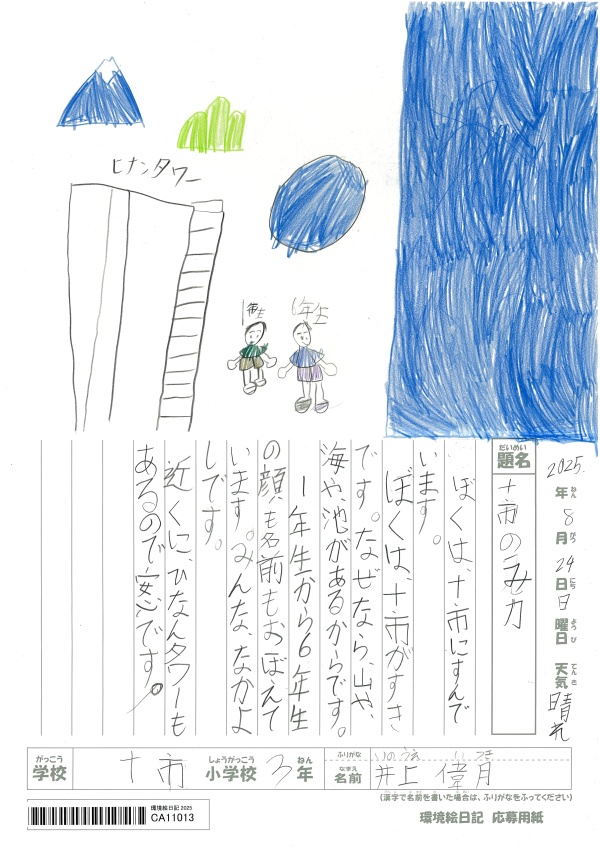 ヒナンタワー
1年生
6年生
2025.年ねん8月がつ24日にち日曜日ようび 天気てんき晴れ
だいめい
題名
十市のみ力
ぼくは、十市にすんで
います。
ぼくは、十市がすき
です。なぜなら、山や、
海や、池があるからです。
1年生から6年生
の顔も名前もおぼえて
います。みんな、なかよ
しです。
近くに、ひなんタワーも
あるので安心です。
がっこう
学校
十市
しょうがっこう
小学校
3年
ねん
ふりがな
いのうえ いつき
なまえ
名前
井上 偉月
(漢字で名前を書いた場合は、ふりがなをふってください)
環境絵日記 2025
CA11013
環境絵日記 応募用紙